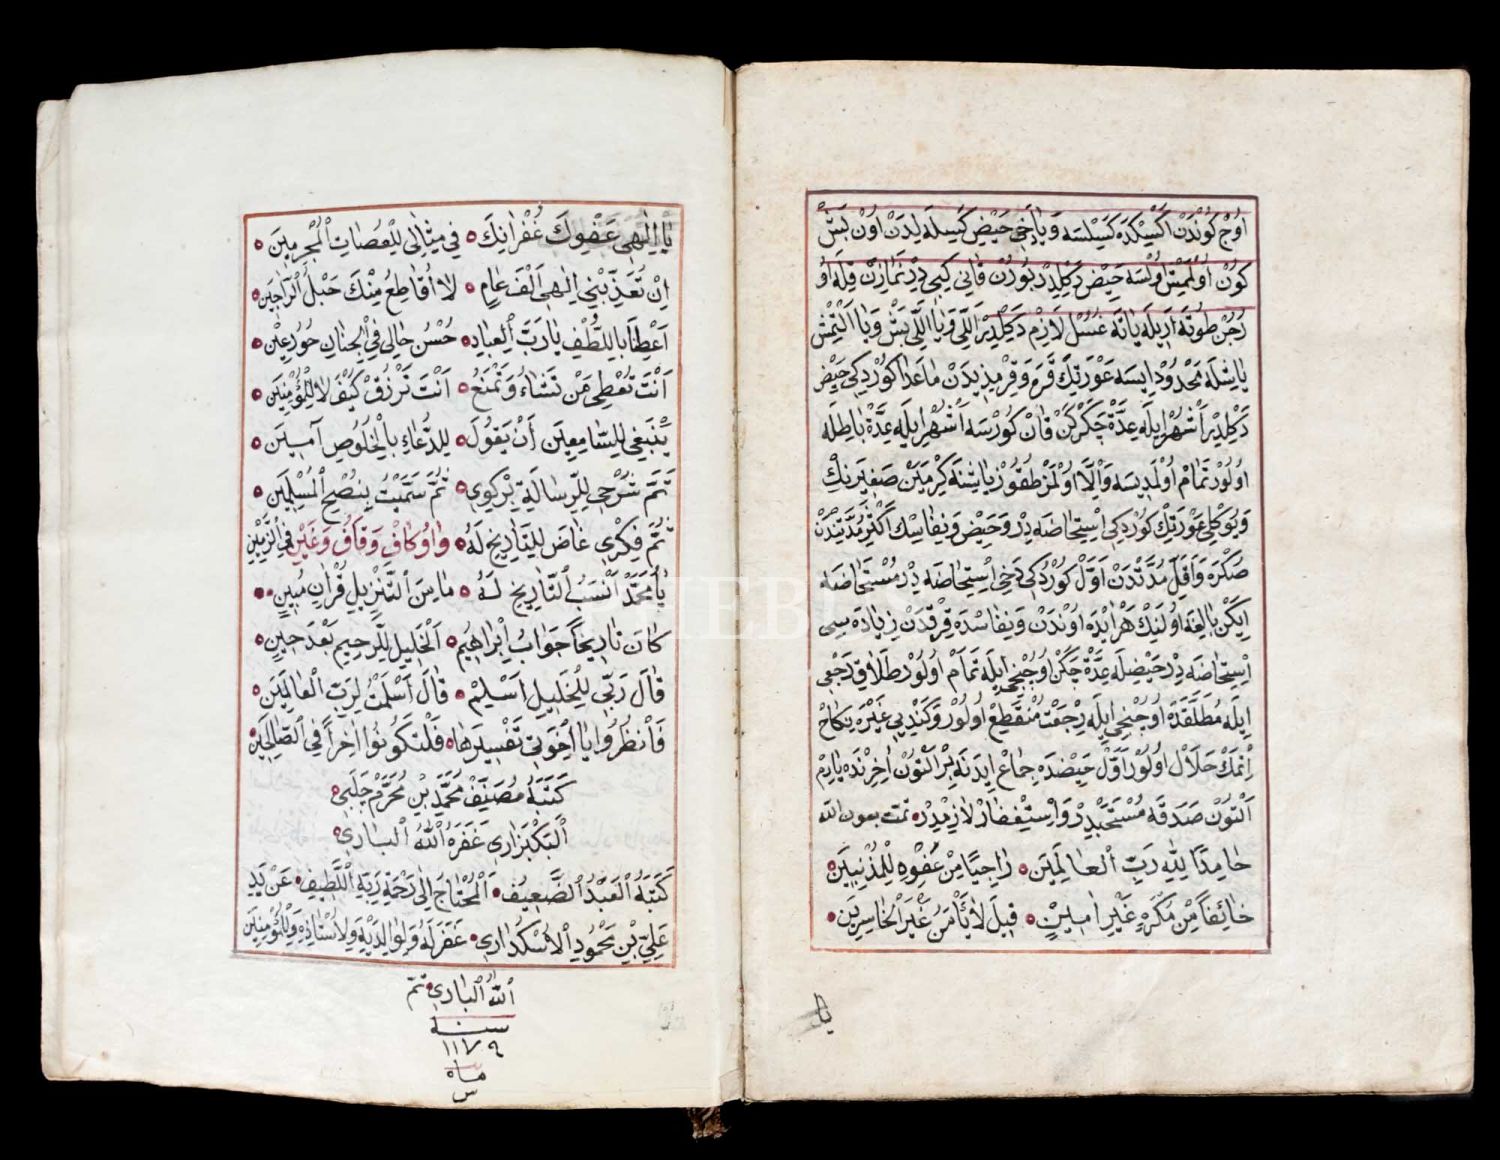 اُوچْ كُونْدَنْ اَكْسِكْدَه كَسِلْسَه وَيَاخِى حَيْضْ كَسِلَه لِدَنْ اُونْ بَشْ
كُونْ اُولْمَمِشْ اُولْسَه حَيْضْ دَكِلْدِرْ بُورُنْ قَانِى كِبِى دِرْ نَمَازِنْ قِلَه اُو
رُجِنْ طُوتَه اَرِيلَه يَاتَه غُسُلْ لَازِمْ دَكِلْدِرْ اَللِّى وَيَا اَللِّى بَشْ وَيَا اَلْتِمِشْ
يَاشِلَه مَحْدُودْ اِيسَه عَوْرَتِكْ قَرَه وَقِرْمِزِيدَنْ مَاعَدَا كُورْدِكِى حَيْضْ
دَكِلْدِرْ اَشْهُرْ اِيلَه عِدَّةْ چَكَرْكَنْ قَانْ كُورْسَه اَشْهُرْ اِيلَه عِدَّةْ بَاطِلَه
اُولُورْ تَمَامْ اُولْمَدِيسَه وَاِلَّا اُولْمَزْ طُقُوزْ يَاشِنَه كِرْمَيَنْ صَغِيرَنِكْ
وَيُوكْلِى عَوْرَتِكْ كُورْدِكِى اِسْتِحَاضَه دِرْ وَحَيْضْ وَنِفَاسِكْ اَكْثَرِ مُدَّتِنْدَنْ
صُكْرَه وَاَقَلِّ مُدَّتْدَنْ اَوَّلْ كُورْدُكِى دَخِى اِسْتِحَاضَه دِرْ مُسْتَحَاضَه
اِيكَنْ بَالِغَه اُولَنِكْ هَرْ اَيْدَه اُونْدَنْ وَنِفَاسْدَه قِرْقْدَنْ زِيَادَه سِى
اِسْتِحَاضَه دِرْ حَيْضِلَه عِدَّةْ چَكَنْ اُوچُنْجِى اِيلَه تَمَامْ اُولُورْ طَلَاقِ رَجْعِى
اِيلَه مُطَلَّقَدَه اُوچُنْجِى اِيلَه رِجْعَتْ مُنْقَطِعْ اُولُورْ وَكَنْدِيى غَيْرَه نِكَاحْ
اِتْمَكْ حَلَالْ اُولُورْ اَوَّلْ حَيْضِدَه جِمَاعْ اِيدَنَه بِرْ اَلْتُونْ اٰخِرِنْدَه يَارِمْ
اَلْتُونْ صَدَقَه مُسْتَحَبْدِرْ وَاِسْتِغْفَارْ لَازِمْدِرْ تمت بعون الله
حَامِدًا لِلّٰهِ رَبِّ الْعَالَمِينَ رَاجِيًا مِنْ عَفْوِهِ لِلْمُذْنِبِينَ
خَائِفًا مِنْ مَكْرِهِ غَيْرَ اٰمِينٍ قِيلَ لَا يَأْمَنُ غَيْرُ الْخَاسِرِينَ
يا
يَا اِلٰهِى عَفْوِكَ غُفْرَانِكَ فِي مِثَالِى لِلْعُصَاتِ الْمُجْرِمِينَ
اِنْ تُعَذِّبْنِي اِلٰهِى اَلْفَ عَامٍ لَا اُقَاطِعُ مِنْكَ حَبْلَ الرَّاجِينَ
اَعْطِنَا بِاللُّطْفِ يَا رَبَّ الْعِبَادِ حُسْنَ حَالِى فِي الْجِنَانِ حُورُ عِينٍ
اَنْتَ تُعْطِى مَنْ تَشَاءُ وَتَمْنَعُ اَنْتَ تَرْزُقْ كَيْفَ لَا لِلْمُؤْمِنِينَ
يَنْبَغِي لِلسَّامِعِينَ اَنْ يَقُولَ لِلدُّعَاءِ بِالْخُلُوصِ آمِينَ
تَمَّ شَرْحِى لِلرِّسَالَةِ بِرْكَوِى ثُمَّ سَمَّيْتُ بِنُصْحِ الْمُسْلِمِينَ
ثُمَّ فِكْرِى غَاصَ لِلتَّارِيخِ لَهُ وَاوُ كَافٍ وَقَافُ وَغَيْنٍ فِي الزَّمِيْنِ
يَا مُحَمَّدْ اَنْسَبُ التَّارِيخِ لَهُ مَا مِنَ التَّنْزِيلِ قُرْاٰنِ مُبِينٍ
كَانَ تَارِيخًا جَوَابُ اِبْرَاهِيمُ اَلْخَلِيلِ لِلرَّحِيمِ بَعْدَ حِينٍ
قَالَ رَبِّي لِلْخَلِيلِ اَسْلِمْ قَالَ اَسْلَمْتُ لِرَبِّ الْعَالَمِينَ
فَانْظُرُوا يَا اِخْوَتِي تَفْسِيرَهَا فَلْتَكُونُوا اٰخِرًا فِي الصَّالِحِينَ
كَتَبَهُ مُصَنِّفْ مُحَمَّدْ بِنْ مُحَرَّمْ چَلَبِى
اَلْبَكْبَزَارِي غَفَرَهُ اللّٰهُ الْبَارِي
كَتَبَهُ الْعَبْدُ الضَّعِيفُ اَلْمُحْتَاجُ اِلٰى رَحْمَةِ رَبِّهِ اللَّطِيفِ عَنْ يَدِ
عَلِيِّ بْنِ مَحْمُودِ الْاُسْكُدَارِي غَفَرَ لَهُ وَلِوَالِدَيْهِ وَلِاُسْتَاذِهِ وَلِلْمُؤْمِنِينَ
اَللّٰهُ الْبَارِي تَمَّ
سنه
١١٧٩
ماه
س
PHEBUS